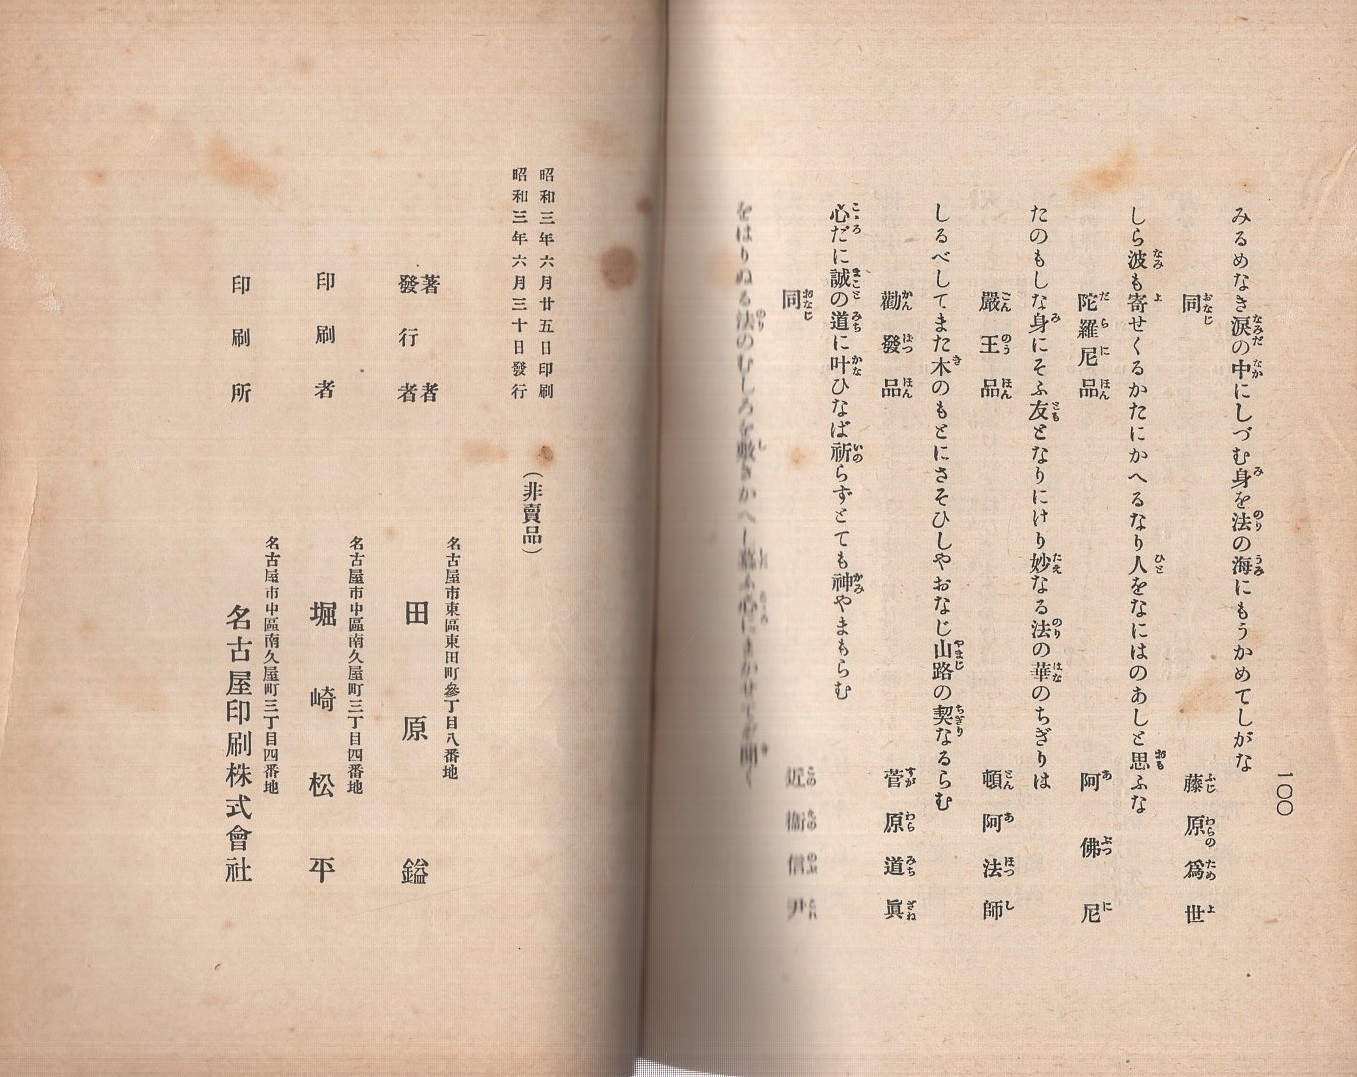 一〇〇
みるめなき涙の中にしづむ身を法の海にもうかめてしがな
同 藤原爲世
しら波も寄せくるかたにかへるなり人をなにはのあしと思ふな
陀羅尼品 阿佛尼
たのもしな身にそふ友となりにけり妙なる法の華のちぎりは
嚴王品 頓阿法師
しるべしてまた木のもとにさそひしやおなじ山路の契なるらむ
勸發品 菅原道眞
心だに誠の道に叶ひなば祈らずとても神やまもらむ
同 近衞信尹
をはりぬる法のむしろを敷きかへし慕ふ心にまかせてぞ聞く
昭和三年六月廿五日印刷
昭和三年六月三十日發行
(非賣品)
名古屋市東區東田町參丁目八番地
著者
發行者 田原鎰
名古屋市中區南久屋町三丁目四番地
印刷者 堀崎松平
名古屋市中區南久屋町三丁目四番地
印刷所 名古屋印刷株式會社